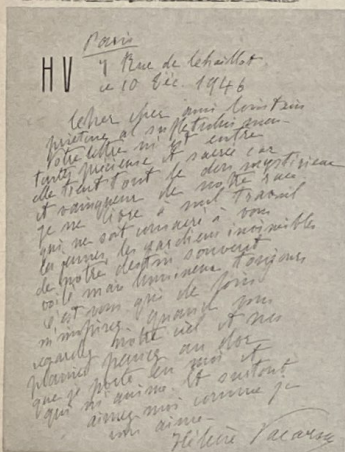 Paris
HV
7 Rue de Chaillot
le 10 Déc. 1946
Cher ami lointain
Votre lettre m'est entre
toutes précieuse et sacrée car
elle tient tout le don mystérieux
et vainqueur de notre race
je ne livre à nul travail
qui ne soit consacré à vous
les gardiens invisibles
de notre destin souvent
voilé mais lumineux toujours
c'est vous qui de loin
m'inspirez quand
regardez notre ciel et nos
plaines pensez au dor
que je porte en moi et
qui m'anime et surtout
aimez moi comme je
vous aime
Hélène Vacaresco